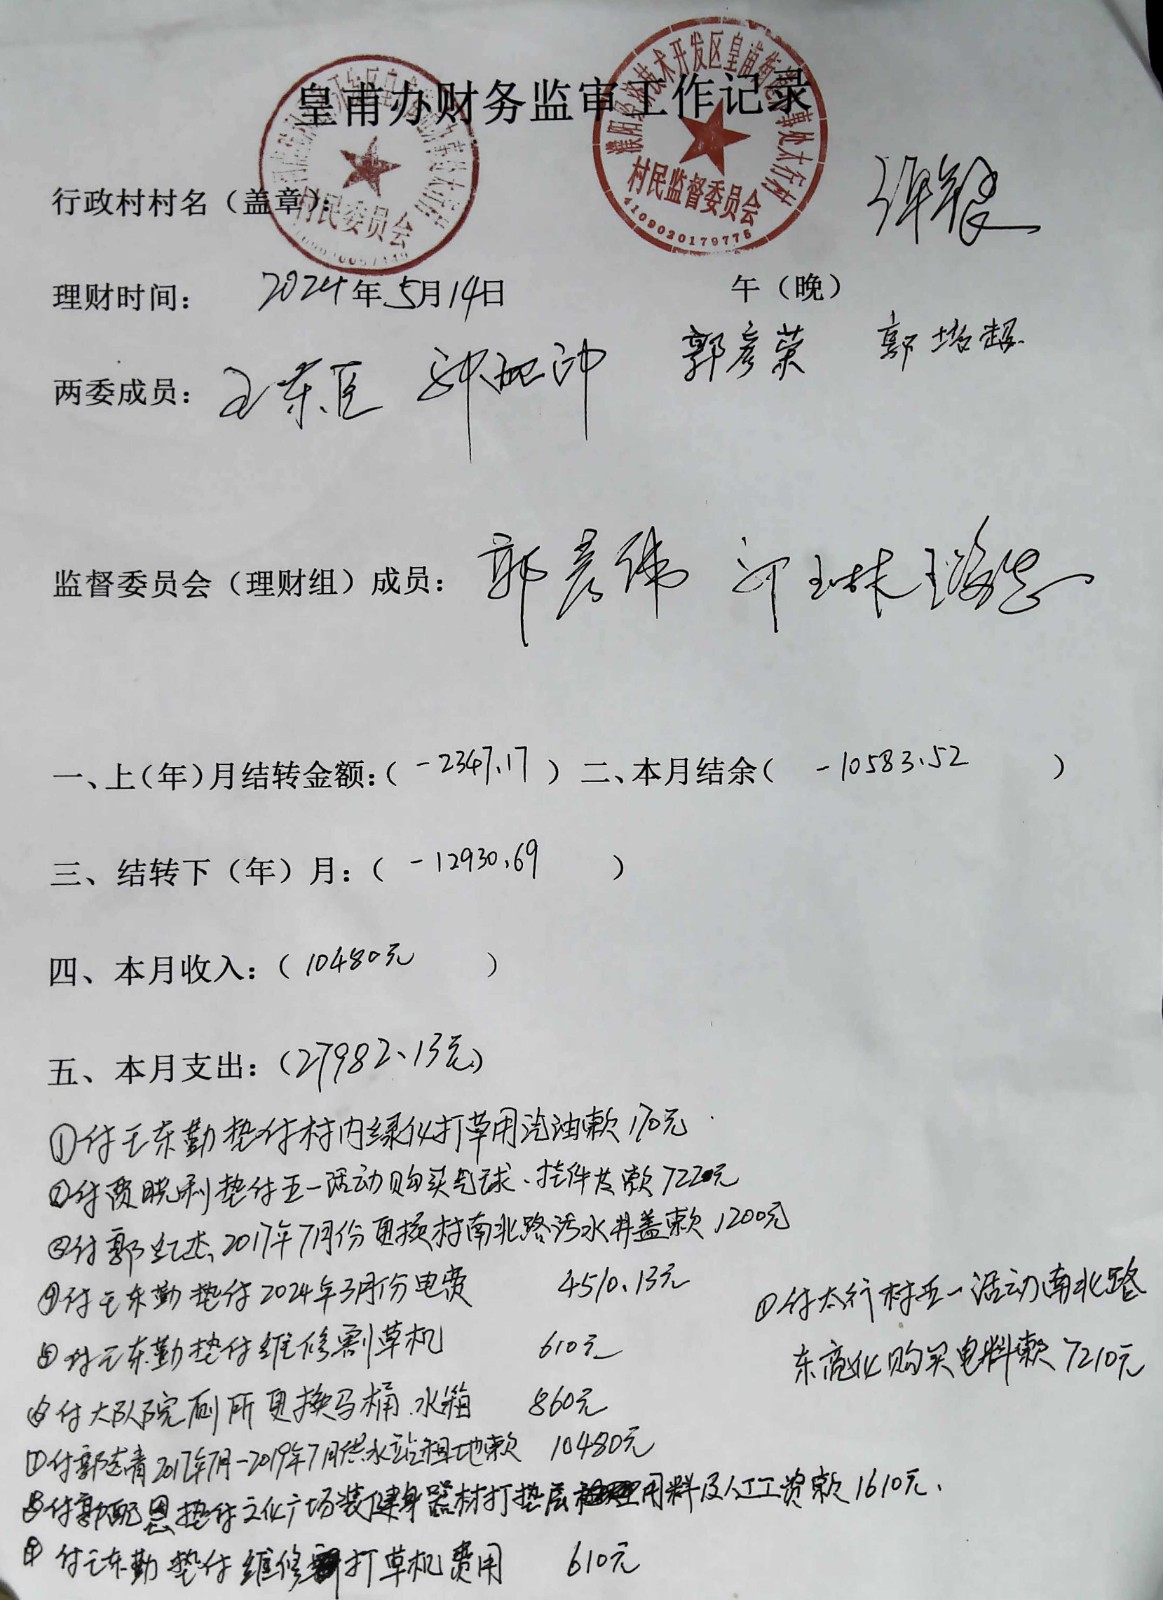 皇甫办财务监审工作记录
村民委员会
濮阳经济技术开发区皇甫街道办事处太行村
村民监督委员会
4109020179775
行政村村名（盖章）：
理财时间： 2024年5月14日 午（晚）
两委成员： 王东臣 郭彦荣 郭培超
监督委员会（理财组）成员： 郭彦伟
一、上（年）月结转金额：（ -2347.17 ） 二、本月结余（ -10583.52 ）
三、结转下（年）月：（ -12930.69 ）
四、本月收入：（ 10480元 ）
五、本月支出：（27982.13元）
①付王东勤垫付村内绿化打草用汽油款170元
②付贾晓利垫付五一活动购买气球、挂件等款722元
③付郭红杰2017年7月份更换村南北路污水井盖款1200元
④付王东勤垫付2024年3月份电费 4510.13元
⑤付王东勤垫付维修割草机 610元
⑥付大队院厕所更换马桶.水箱 860元
⑦付郭志青2017年7月-2019年7月供水站租地款 10480元
⑧付郭配恩垫付文化广场装健身器材打垫层用料及人工工资款1610元.
⑨付王东勤垫付维修打草机费用 610元
⑩付太行村五一活动南北路
东亮化购买电料款7210元